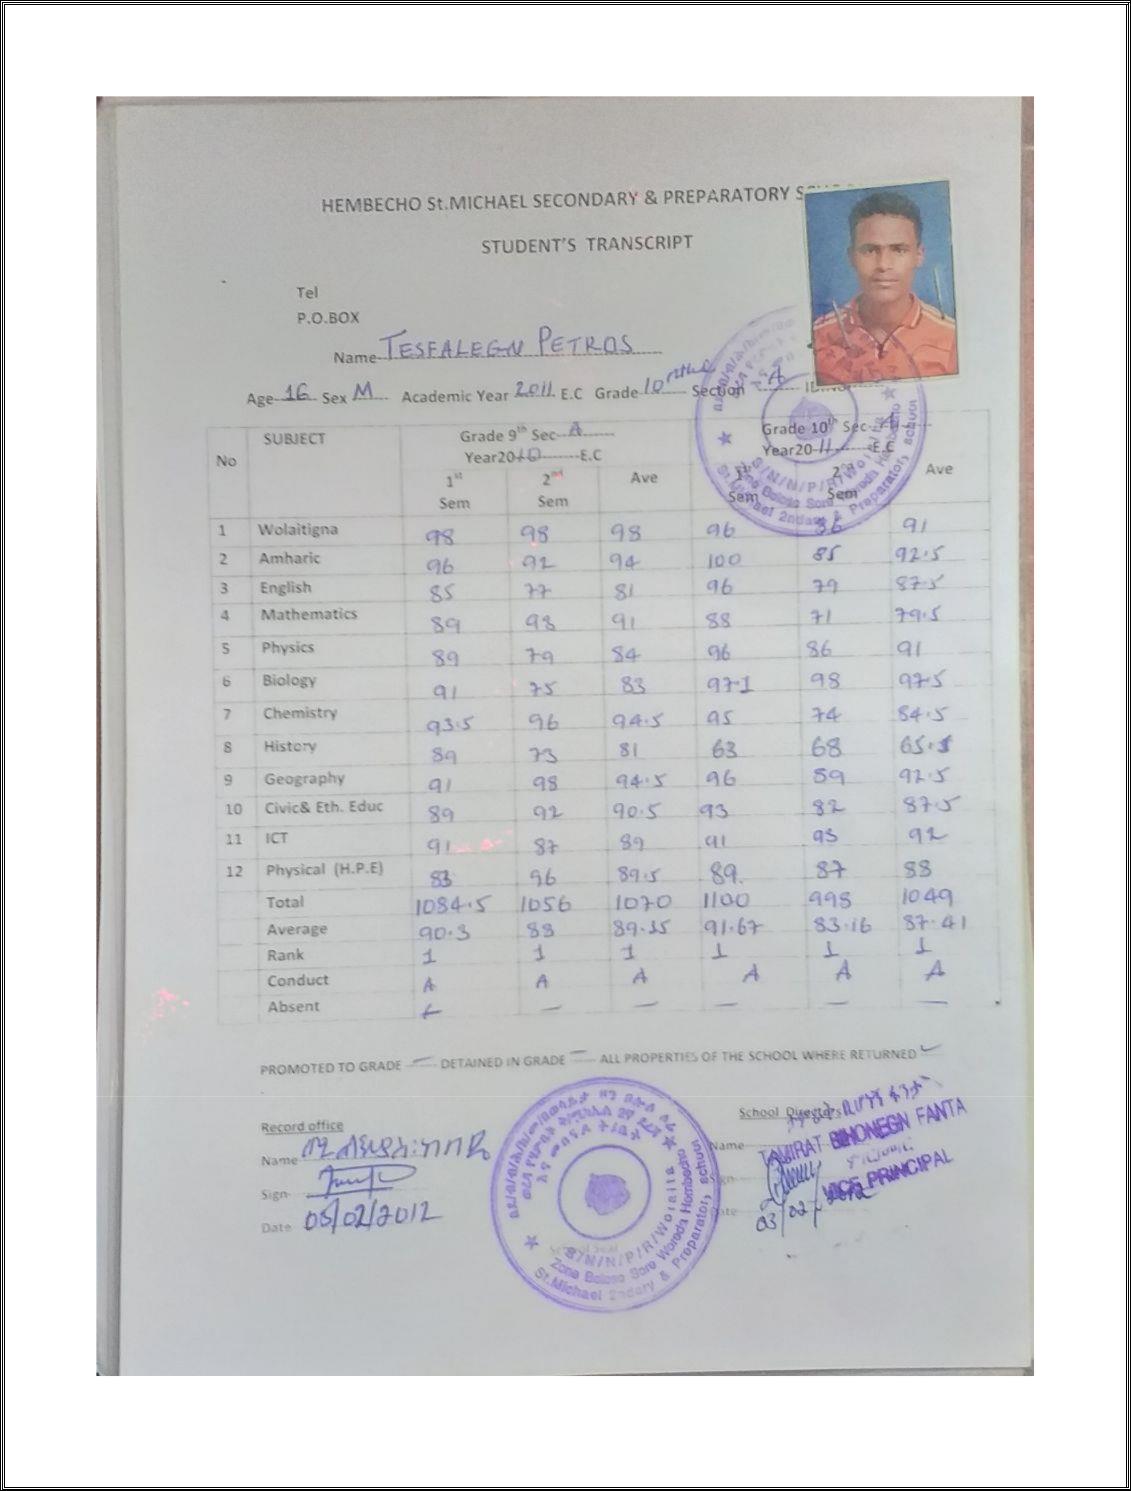 HEMBECHO St.MICHAEL SECONDARY & PREPARATORY
STUDENT'S TRANSCRIPT
Tel
P.O.BOX
Name TESFALEGN PETROS
Age 16 Sex M Academic Year 2011 E.C Grade 10 Section A
No SUBJECT Grade 9th Sec A Grade 10th Sec A
Year2010 E.C Year20 11 E.C
1st Sem 2nd Sem Ave 1st Sem 2nd Sem Ave
1 Wolaitigna 98 98 98 96 86 91
2 Amharic 96 92 94 100 85 92.5
3 English 85 77 81 96 79 87.5
4 Mathematics 89 93 91 88 71 79.5
5 Physics 89 79 84 96 86 91
6 Biology 91 75 83 97.1 98 97.5
7 Chemistry 93.5 96 94.5 95 74 84.5
8 History 89 73 81 63 68 65.5
9 Geography 91 98 94.5 96 89 92.5
10 Civic& Eth. Educ 89 92 90.5 93 82 87.5
11 ICT 91 87 89 91 93 92
12 Physical (H.P.E) 83 96 89.5 89. 87 88
Total 1084.5 1056 1070 1100 998 1049
Average 90.3 88 91.67 83.16 87.41
Rank 1 1 1 1 1 1
Conduct A A A A A A
Absent — — — — —
PROMOTED TO GRADE — DETAINED IN GRADE — ALL PROPERTIES OF THE SCHOOL WHERE RETURNED
Record office
Name
Sign
Date 05/02/2012
School Directors
Name TAMIRAT BIHONEGN FANTA
VICE PRINCIPAL
Sign
Date 03/02/2012
S/N/N/P/R/Wolaita
Zone Boloso Sore Woreda Hembecho
St.Michael 2ndary & Preparatory school